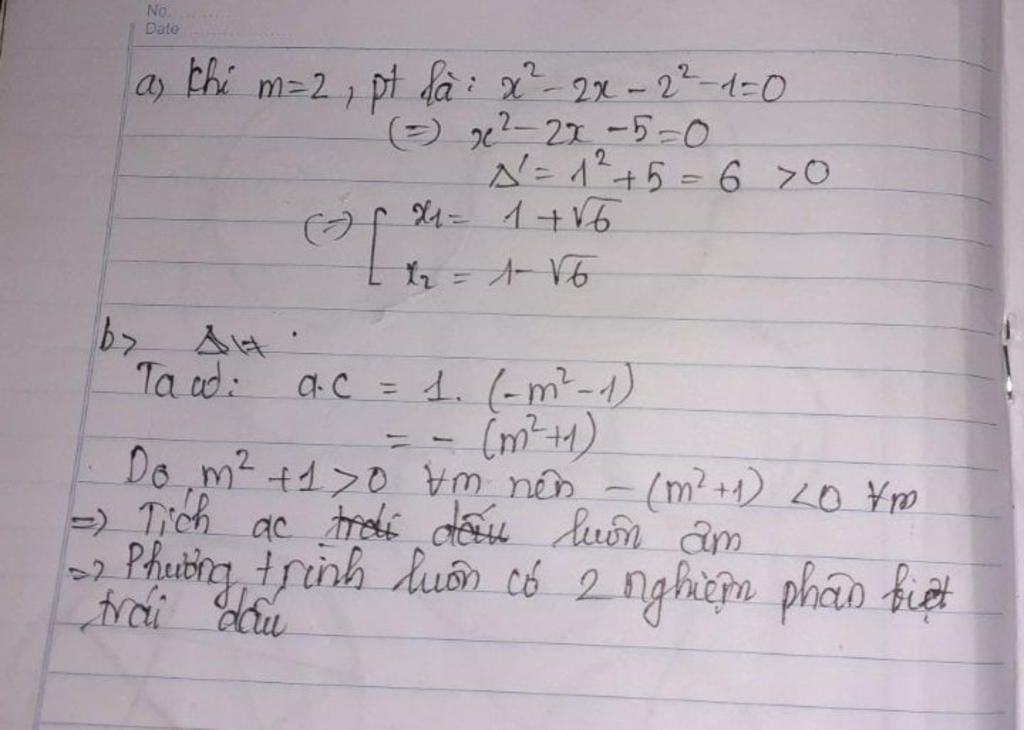 No.
Date
a, khi m=2, pt là: x² - 2x - 2² - 1=0
(=) x² - 2x - 5=0
Δ' = 1² + 5 = 6 >0
(=) [ x₁ = 1 + √6
x₂ = 1 - √6
b>
Ta có: a.c = 1. (-m² - 1)
= - (m²+1)
Do m² + 1 > 0 ∀m nên - (m²+1) <0 ∀m
=> Tích ac trái dấu luôn âm
=> Phương trình luôn có 2 nghiệm phân biệt
trái dấu